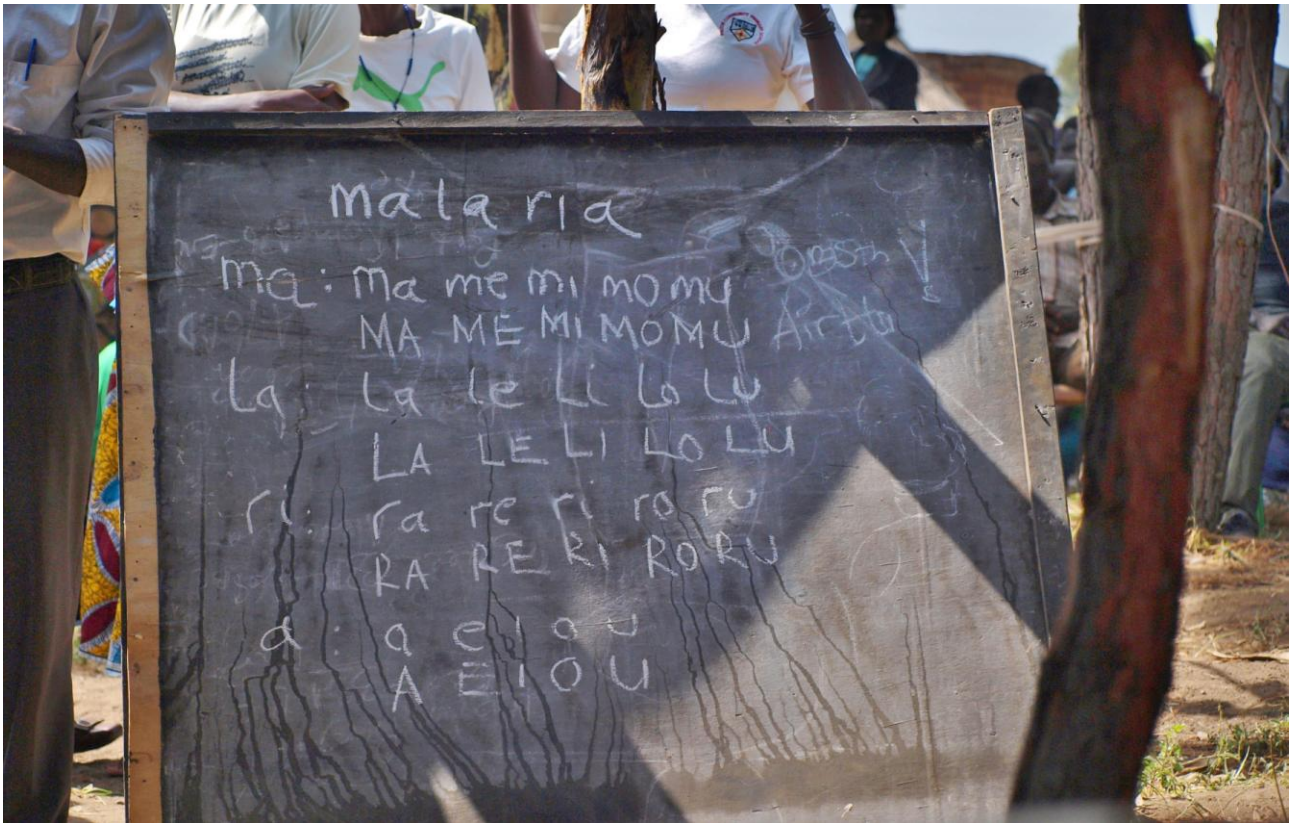 malaria
ma: ma me mi mo mu
MA ME MI MO MU
la: la le li lo lu
LA LE LI LO LU
ri: ra re ri ro ru
RA RE RI RO RU
a: a e i o u
A E I O U